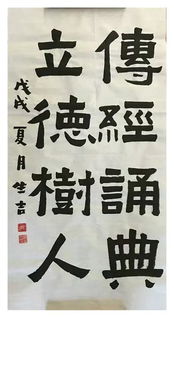 傳經誦典
立德樹人
戊戌夏月生吉